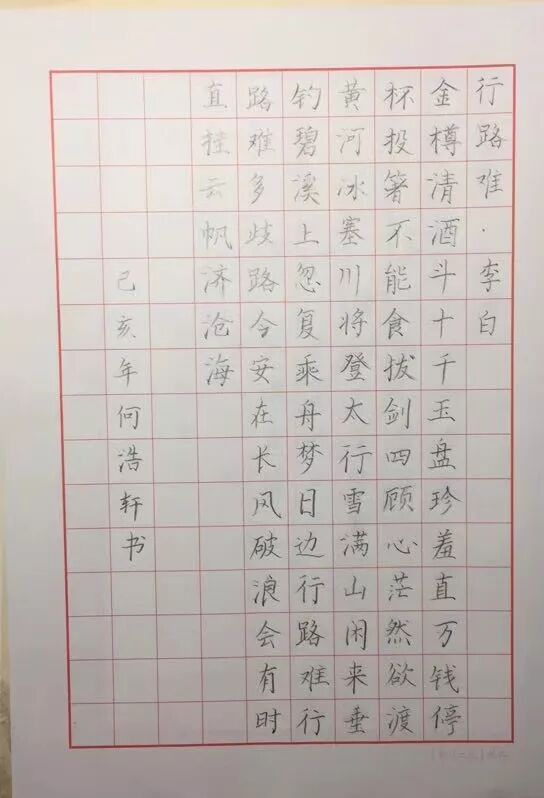 行路难·李白
金樽清酒斗十千玉盘珍羞直万钱停
杯投箸不能食拔剑四顾心茫然欲渡
黄河冰塞川将登太行雪满山闲来垂
钓碧溪上忽复乘舟梦日边行路难行
路难多歧路今安在长风破浪会有时
直挂云帆济沧海
己亥年何浩轩书